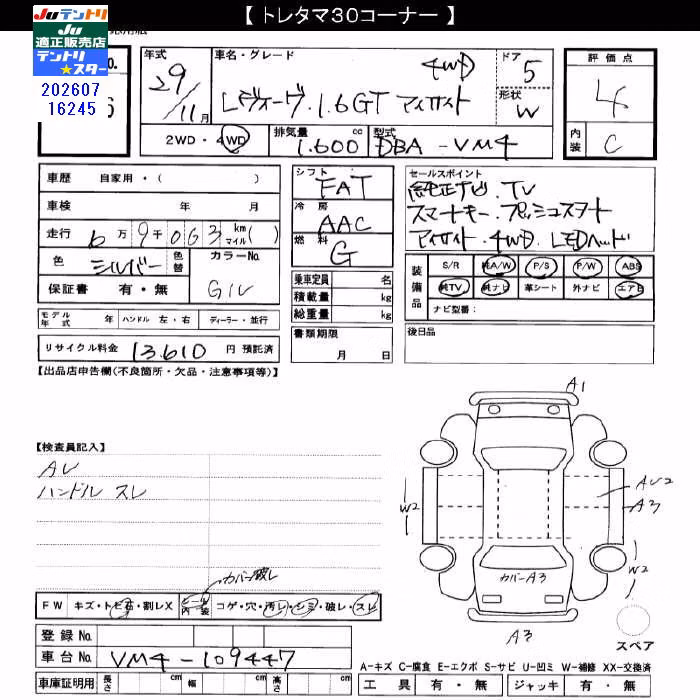 【 トレタマ30コーナー 】
Juテントリ
Ju
適正販売店
テントリ
★スター
202607
16245
No.
6
年式
29/11月
車名・グレード
4WD
レヴォーグ.1.6GT アイサイト
ドア
5
形状
W
評価点
4
内装
C
2WD・4WD
排気量
1.600 cc
型式
DBA-VM4
車歴 自家用・( )
車検 年 月
走行 6万9千063 km マイル( )
色 シルバー 色替
カラーNo.
G1U
保証書 有・無
モデル年式 年 ハンドル 左・右 ディーラー・並行
リサイクル料金 13.610 円 預託済
シフト
FAT
冷房
AAC
燃料
G
乗車定員 名
積載量 kg
総重量 kg
書類期限
月 日
セールスポイント
純正ナビ.TV
スマートキー.プッシュスタート
アイサイト.4WD.LEDヘッド
装備品
S/R 純A/W P/S P/W ABS
純TV 純ナビ 革シート 外ナビ エアB
ナビ型番:
後日品
【出品店申告欄(不良箇所・欠品・注意事項等)】
【検査員記入】
AU
ハンドル スレ
カバー破レ
FW キズ・トビ石・割レX
内装 コゲ・穴・汚レ・シミ・破レ・スレ
登録No.
車台No. VM4-109447
車庫証明用 長さ cm 幅 cm 高さ cm
A1
W2
AU2
A3
W2
カバーA3
A3
スペア
A-キズ C-腐食 E-エクボ S-サビ U-凹ミ W-補修 XX-交換済
工具 有・無 ジャッキ 有・無